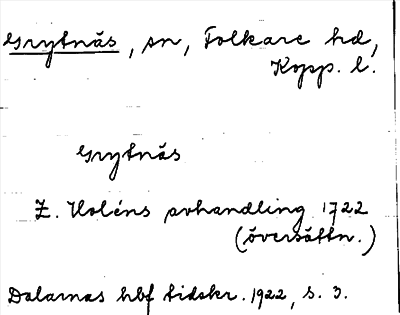 Grytnäs, sn, Folkare hd,
Kopp. l.
Grytnäs
Z. Holéns avhandling 1722
(översättn.)
Dalarnas hbf tidskr. 1922, s. 3.